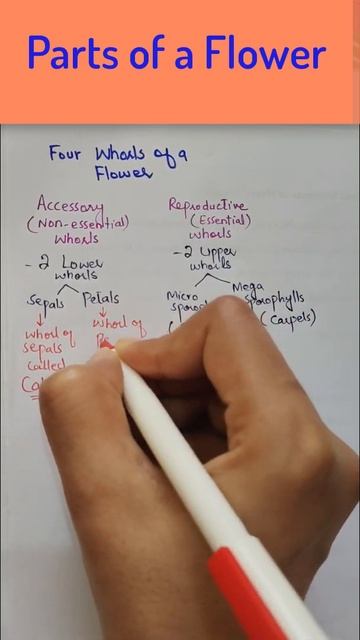 Parts of a Flower
Four Whorls of a
Flower
Accessory
(Non-essential)
Whorls
- 2 Lower
whorls
Sepals Petals
whorl of
sepals
called
whorl of
Reproductive
(Essential)
whorls
- 2 Upper
whorls
Micro
Mega
(Carpels)